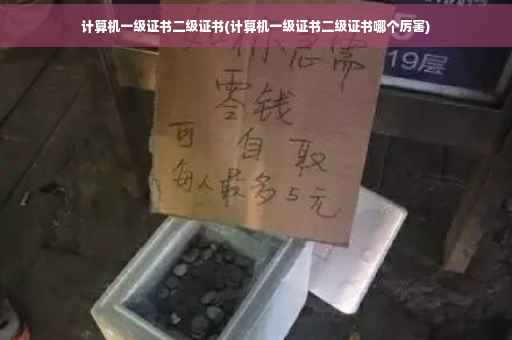 计算机一级证书二级证书(计算机一级证书二级证书哪个厉害)
如你急需
零钱
可自取
每人最多5元
5
19层